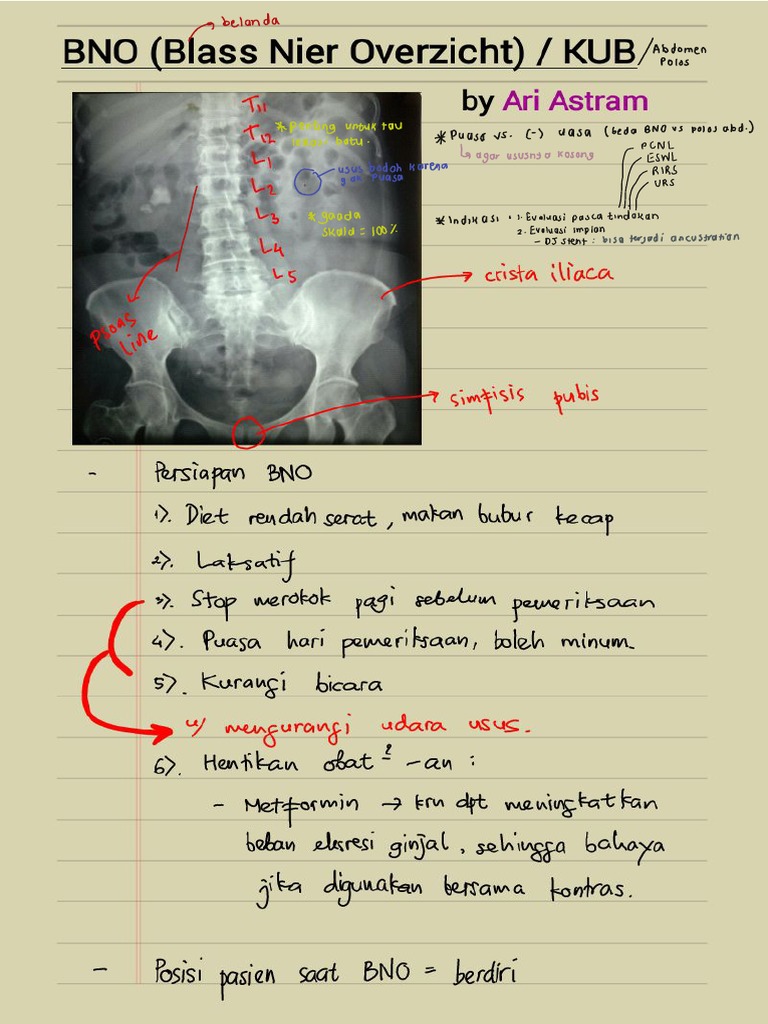 belanda
BNO (Blass Nier Overzicht) / KUB / Abdomen
Polos
by Ari Astram
T11
T12
L1
L2
L3
L4
L5
* penting untuk tau
batu.
usus karena
gak puasa
* gaada
skala = 100%
psoas
line
* Puasa vs. (-) (beda BNO vs polos abd.)
↳ agar ususnya kosong
PCNL
ESWL
RIRS
URS
* Indikasi : 1. Evaluasi pasca tindakan
2. Evaluasi implan
- DJ stent : bisa terjadi ancustration
crista iliaca
simfisis pubis
- Persiapan BNO
1). Diet rendah serat, makan bubur kecap
2). Laksatif
3). Stop merokok pagi sebelum pemeriksaan
4). Puasa hari pemeriksaan, boleh minum.
5). Kurangi bicara
u/ mengurangi udara usus.
6). Hentikan obat² -an :
- Metformin → krn dpt meningkatkan
beban eksresi ginjal, sehingga bahaya
jika digunakan bersama kontras.
- Posisi pasien saat BNO = berdiri